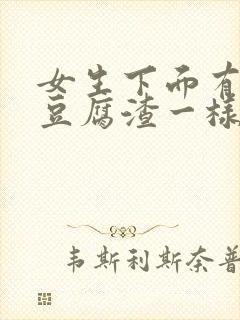 女生下而有
豆腐渣一样
韦斯利斯奈普